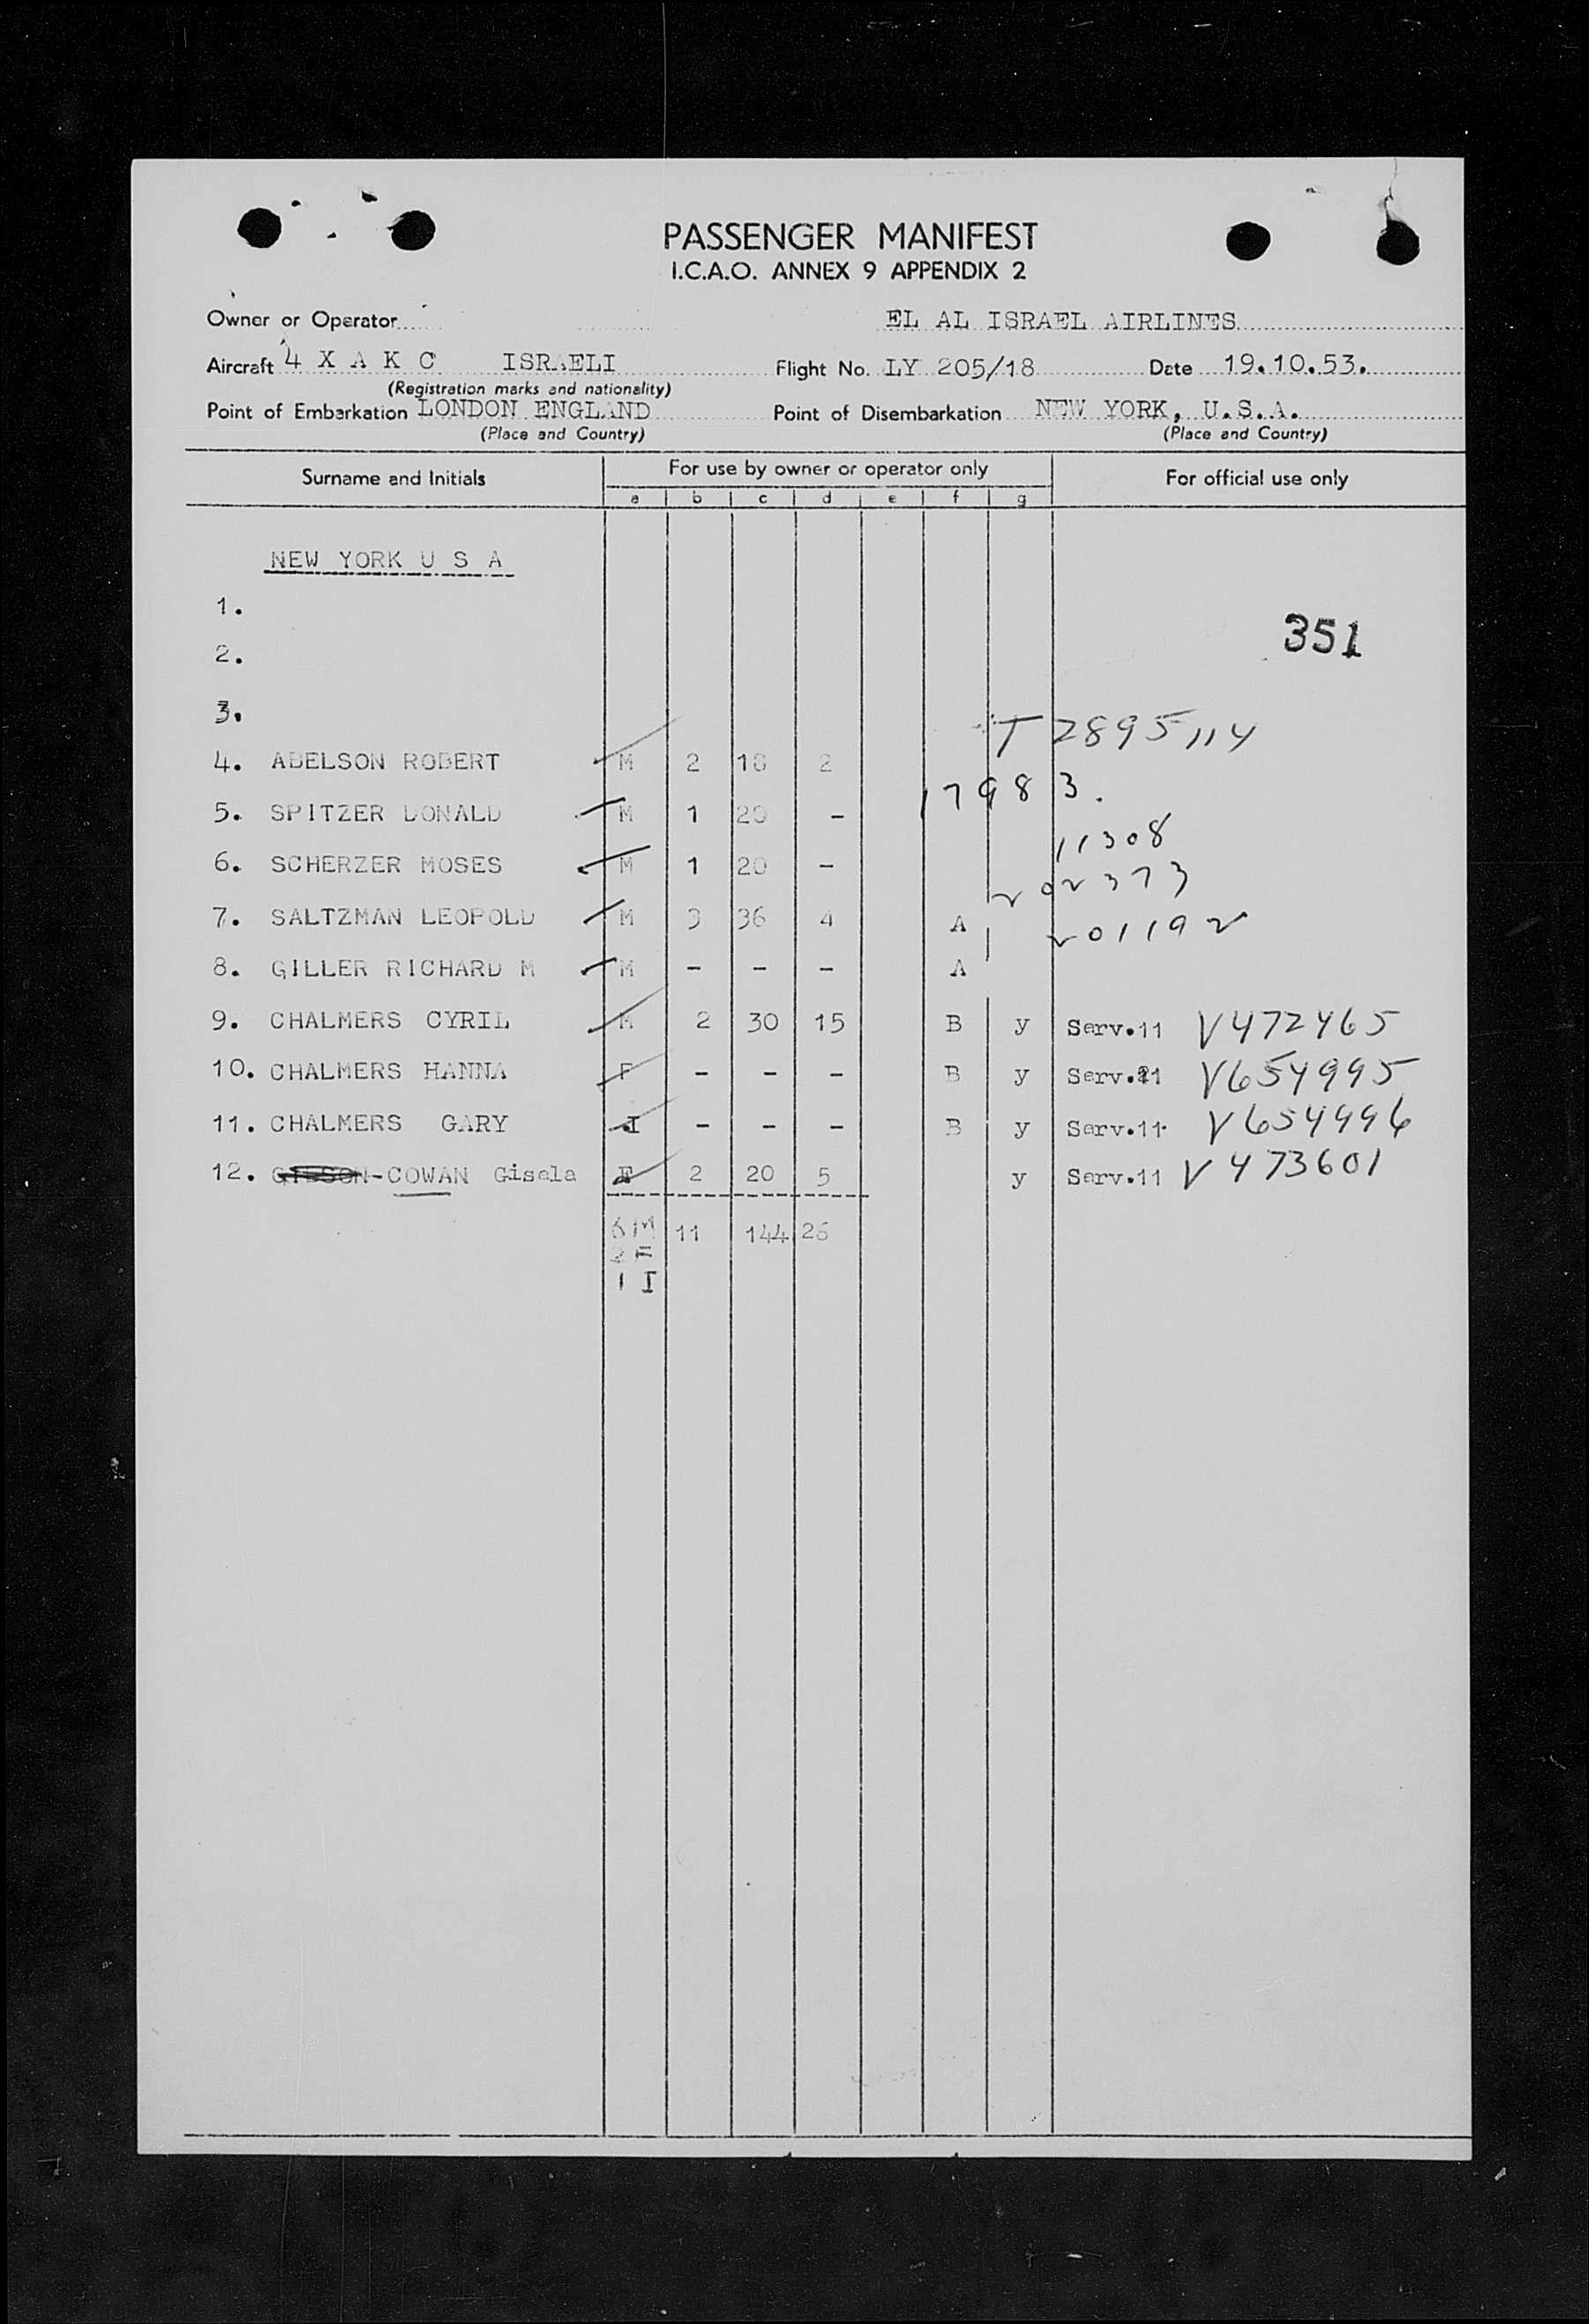 PASSENGER MANIFEST
I.C.A.O. ANNEX 9 APPENDIX 2
Owner or Operator EL AL ISRAEL AIRLINES
Aircraft 4 X A K C ISRAELI Flight No. LY 205/18 Date 19.10.53.
(Registration marks and nationality)
Point of Embarkation LONDON ENGLAND Point of Disembarkation NEW YORK, U.S.A.
(Place and Country) (Place and Country)
Surname and Initials For use by owner or operator only For official use only
a b c d e f g
NEW YORK U S A
1.
351
2.
3.
T 2895114
4. ABELSON ROBERT M 2 18 2
17983.
5. SPITZER DONALD M 1 20 -
11308
6. SCHERZER MOSES M 1 20 -
202373
7. SALTZMAN LEOPOLD M 3 36 4 A 201192
8. GILLER RICHARD M M - - - A
9. CHALMERS CYRIL M 2 30 15 B y Serv.11 V472465
10. CHALMERS HANNA F - - - B y Serv.11 V654995
11. CHALMERS GARY I - - - B y Serv.11 V654996
12. -COWAN Gisela F 2 20 5 y Serv.11 V473601
6M 11 144 26
2F
1 I